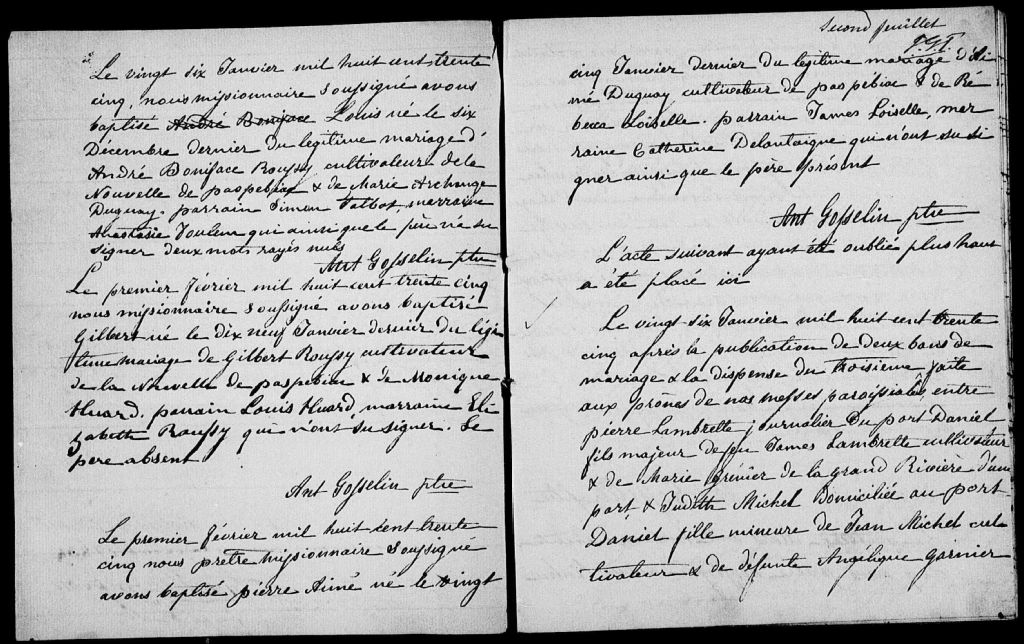 Le vingt six Janvier mil huit cent trente
cinq, nous missionnaire soussigné avons
baptisé André Boniface Louis né le six
Décembre dernier du legitime mariage d'
André Boniface Roussy cultivateur de la
Nouvelle de paspebiac & de Marie Archange
Duguay. parrain Simon Talbot, marraine
Anastasie qui ainsi que le père n'a su
signer deux mots rayés nuls
Ant Gosselin ptre
Le premier février mil huit cent trente cinq
nous missionnaire soussigné avons baptisé
Gilbert né le dix neuf Janvier dernier du légi
time mariage de Gilbert Roussy cultivateur
de la Nouvelle de paspebiac & de Monique
Huard. parrain Louis Huard, marraine Eli
zabeth Roussy qui n'ont su signer. Le
père absent
Ant Gosselin ptre
Le premier février mil huit cent trente
cinq nous prêtre missionnaire soussigné
avons baptisé pierre Aimé né le vingt
Second feuillet
cinq Janvier dernier du legitime mariage d'Ai
mé Duguay cultivateur de paspebiac & de Ré
becca Loiselle. parrain James Loiselle, mar
raine Catherine Delantaigne qui n'ont su si
gner ainsi que le père présent
Ant Gosselin ptre
L'acte suivant ayant été oublié plus haut
a été placé ici
Le vingt six Janvier mil huit cent trente
cinq après la publication de deux bans de
mariage & la dispense du troisieme, faite
aux prônes de nos messes paroissiales, entre
pierre Lambrette journalier du port Daniel
fils majeur de feu James Lambrette cultivateur
& de Marie Grenier de la grand Rivière d'une
part & Judith Michel Domiciliée au port
Daniel fille mineure de Jean Michel cul
tivateur & de défunte Angélique Garnier